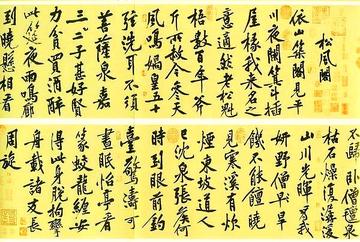 松風閣
依山築閣見平
川夜闌箕斗插
屋椽我來名之
意適然老松魁
梧數百年斧
斤所赦今參天
風鳴媧皇五十
弦洗耳不須
菩薩泉嘉
三二子甚好賢
力貧買酒醉
此筵夜雨鳴廊
到曉懸相看
不歸臥僧氈泉
枯石燥復潺湲
山川光暉為我
妍野僧旱
飢不能饘曉
見寒溪有炊
煙東坡道人
已沈泉張侯何
時到眼前釣
臺驚濤可
晝眠怡亭看
篆蛟龍纏安
得此身脫拘攣
舟載諸友長
周旋